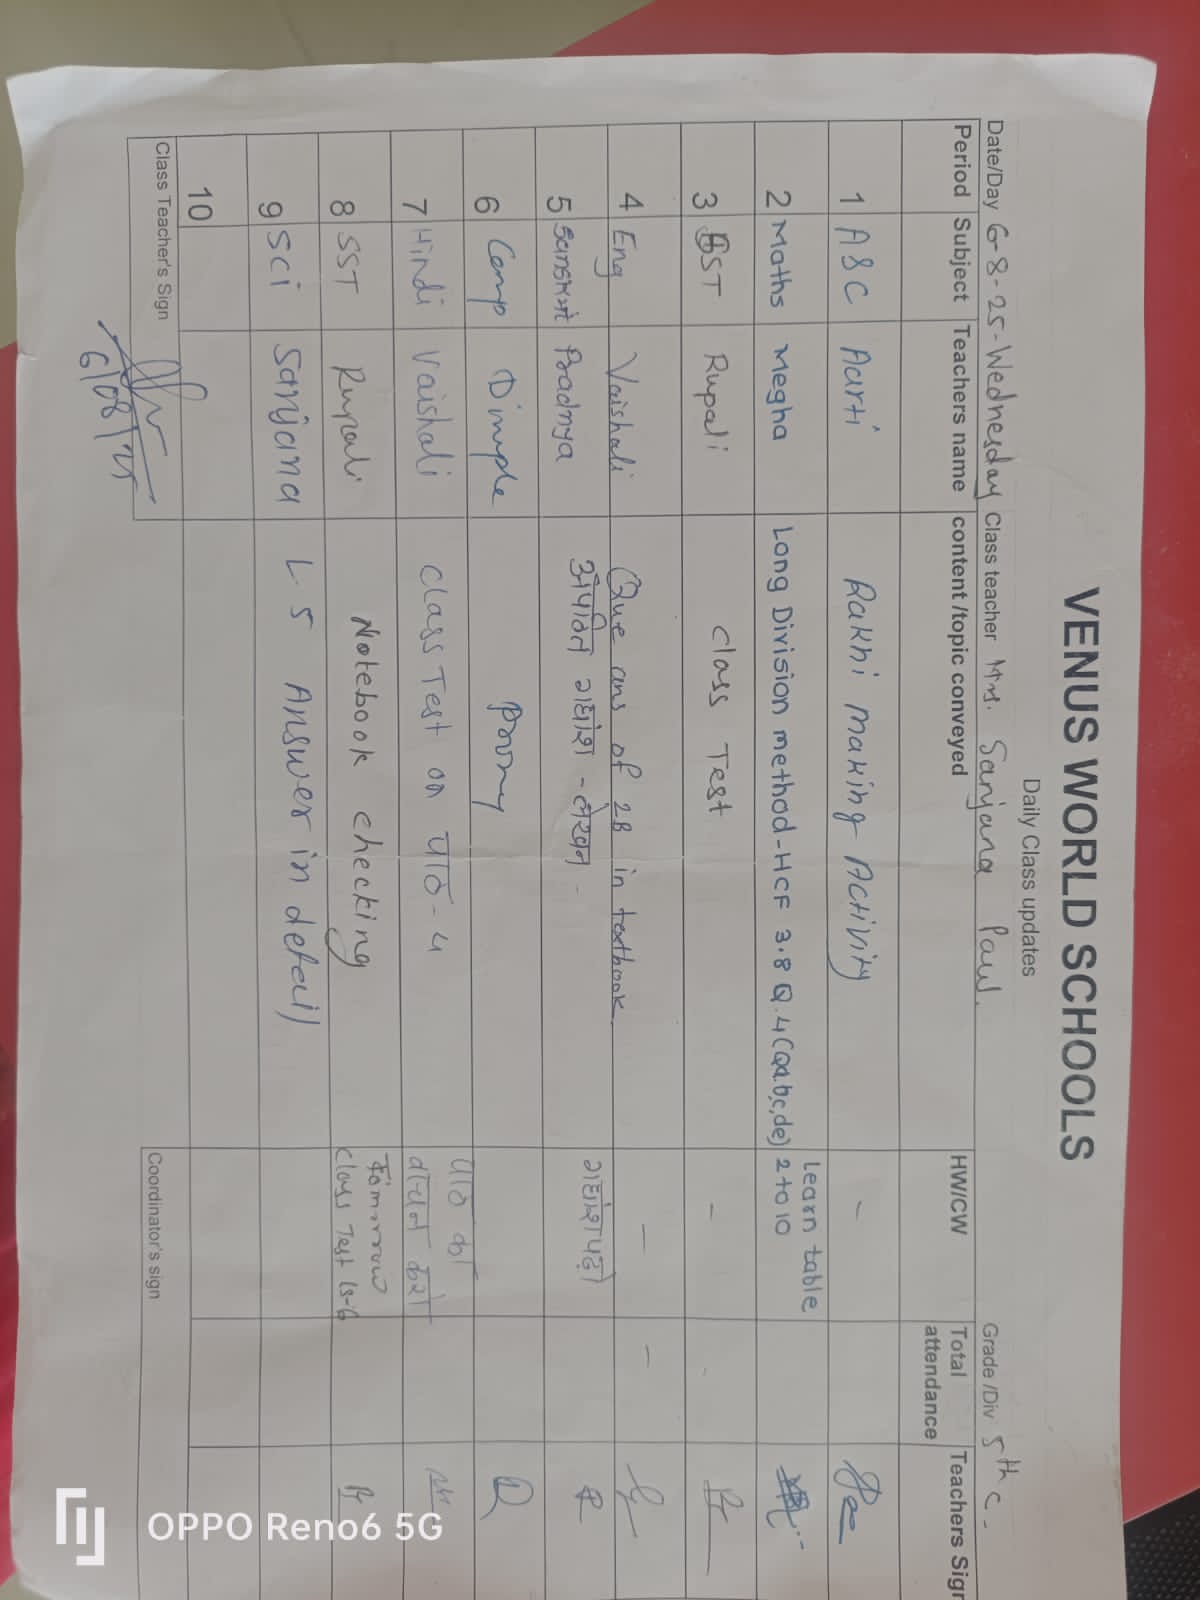 VENUS WORLD SCHOOLS
Daily Class updates
Date/Day 6-8-25-Wednesday Class teacher Mrs. Sanjana Paul. Grade /Div 5th C.
Period Subject Teachers name content /topic conveyed HW/CW Total attendance Teachers Sign
1 A&C Aarti Rakhi Making Activity -
2 Maths Megha Long Division method-HCF 3.8 Q.4(a,b,c,de) learn table 2 to 10
3 SST Rupali class Test -
4 Eng Vaishali Que ans of 2B in textbook - -
5 Pradnya अपठित गद्यांश - लेखन - गद्यांश पढ़ो
6 Comp Dimple
7 Hindi Vaishali Class Test on पाठ-4 पाठ का वाचन करो
8 SST Rupali Notebook checking Tomorrow Class Test Ls-6
9 Sci Sanjana L 5 Answer in detail
10
Class Teacher's Sign
6/08/25
Coordinator's sign
OPPO Reno6 5G